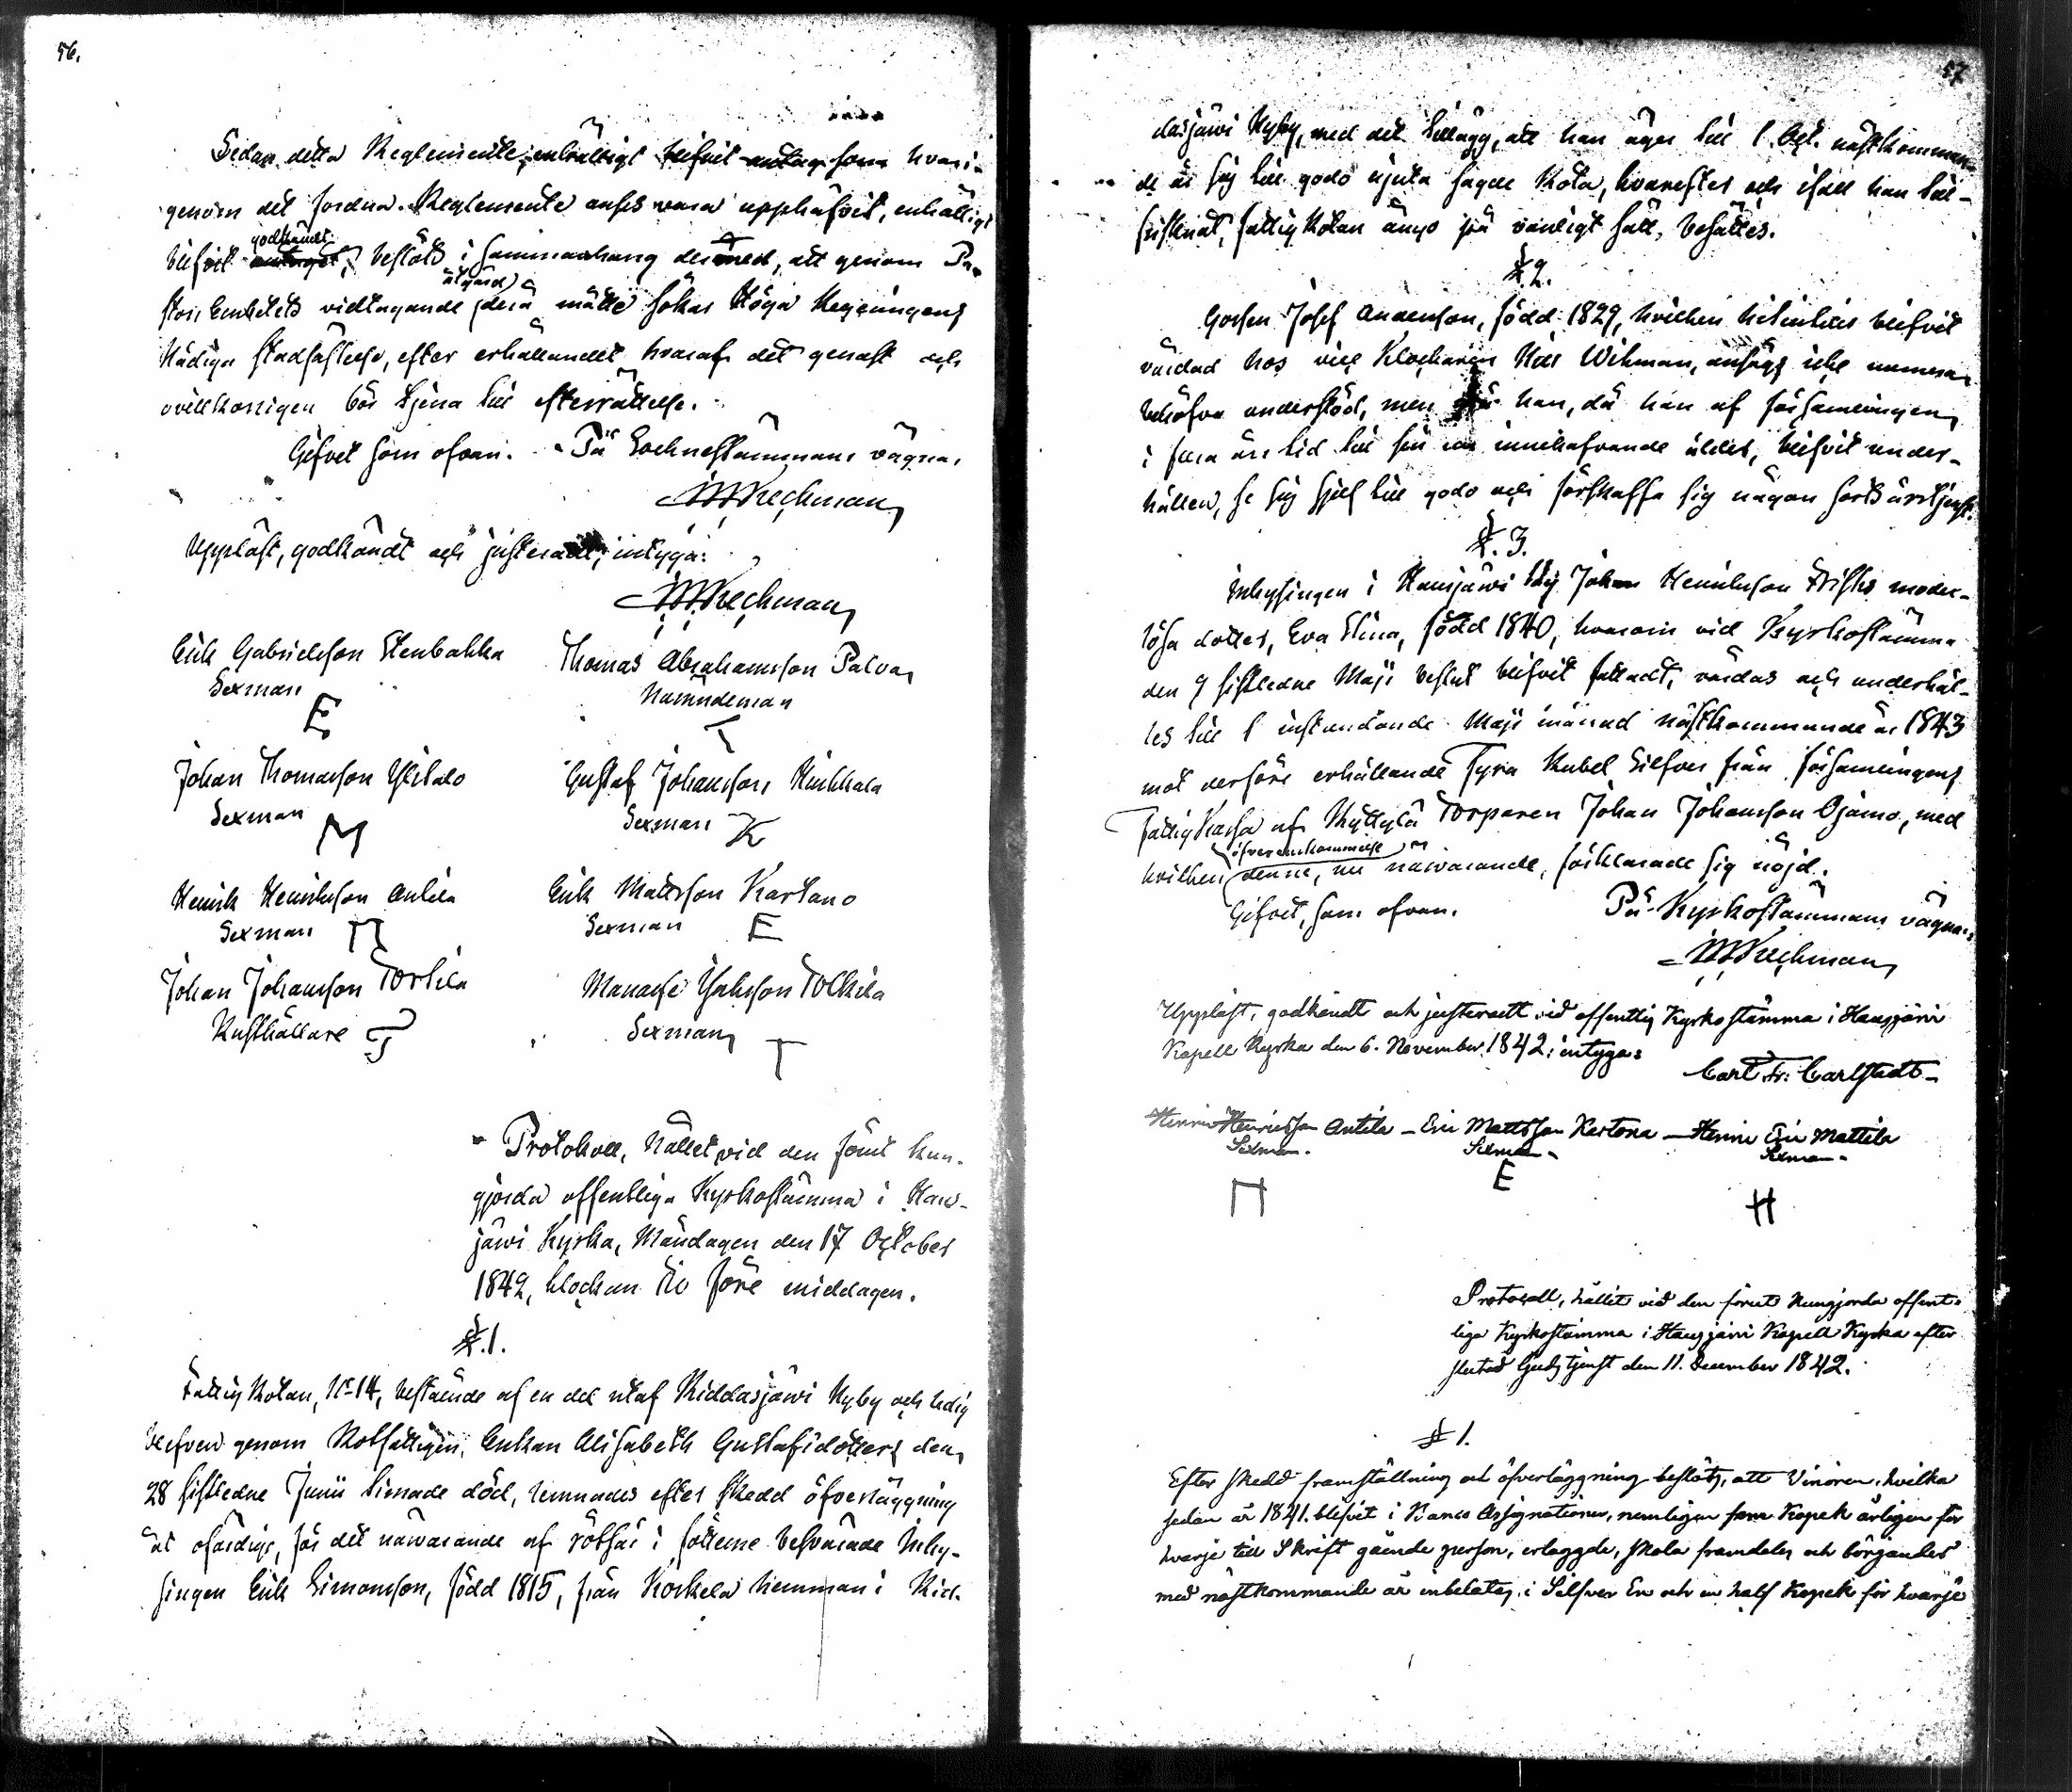 56.
Sedan detta Reglemente, enhälligt blifvit antag som hvari-
genom det fordna Reglemente anses vara upphäfvit, enhälligt
godkändt
blifvit antaget, beslöts i sammanhang dermed, att genom Pa-
åtgärd
stors Embetets vidtagande måtte sökas Höga Regeringens
Nådiga stadfästelse, efter erhållandet hvaraf det genast och
ovillkorligen bör tjena till efterrättelse.
Gifvet som ofvan. På Socknestämmans vägnar
Uppläst, godkändt och justeradt, intyga:
Erik Gabrielsson Stenbakka Thomas Abrahamsson Palva
Sexman Nämndeman
E T
Johan Thomasson Ylitalo Gustaf Johansson Kurkkala
Sexman M Sexman K
Henrik Henriksson Antila Erik Mattsson Kartano
Sexman Sexman E
Johan Johansson Tortila Manasse Tolkila
Rusthållare Sexman T
Protokoll, hållet vid den förut kun-
gjorda offentliga Kyrkostämma i Haus-
järvi Kyrka, Måndagen den 17 October
1842, klockan tio före middagen.
§.1.
Fattig Rotan, No 14, bestående af en del utaf Riddasjärvi Nyby och ledig
blefven genom Rotfattigen, Enkan Elisabeth Gustafsdotters den
28 sistledne Junii timade död, lemnades efter skedd öfverläggning
åt ofärdige, för det närvarande af rötsår i fötterne besvärade Inhy-
singen Erik Simonsson, född 1815, från Korkela hemman i Rid-
57
dasjärvi Nyby, med det tillägg, att han äger till 1 Oct. nästkomman-
de år sig till godo njuta sagde Rota, hvarefter och ifall han till-
frisknat, fattig Rotan ånyo på vanligt sätt, besättes.
§2.
Gossen Josef Andersson, född 1829, hvilken hitintills blifvit
vårdad hos vice Klockaren Nils Wikman, ansågs icke numera
behöfva understöd, men han, då han af församlingen
i flera års tid till sin nu innehafvande ålder, blifvit under-
hållen, se sig sjelf till godo och förskaffa sig någon sorts årstjenst.
§.3.
Inhysingen i Hausjärvi by Johan Henriksson Frisks moder-
lösa dotter, Eva Stina, född 1840, hvarom vid Kyrkostämma
den 9 sistledne Maji beslut blifvit fattadt, vårdas och underhål-
les till 1 instundande Maji månad nästkommande år 1843
mot derföre erhållande Fyra Rubel Silfver från församlingens
Fattig Kassa af Kyttylä Torparen Johan Johansson Ojamo, med
öfverenskommelse
hvilken denne, nu närvarande, förklarade sig nöjd.
Gifvet, som ofvan. På Kyrkostämmans vägnar
Uppläst, godkändt och justeradt vid offentlig Kyrkostämma i Hausjärvi
Kapell Kyrka den 6. November 1842, intyga:
Carl Fr: Carlstedt
Henric Henricsson Antila – Eric Mattsson Kartona – Henric Eric Mattila
Sexman. Sexman Sexman
E H
Protocoll, hållit vid den förut kungjorda offent-
liga Kyrkostämma i Hausjärvi Kapell Kyrka efter
slutad Gudstjenst den 11. December 1842.
§ 1.
Efter skedd framställning och öfverläggning beslöts, att Vinören, hvilka
sedan år 1841. blifvit i Banco Assignationer, nemligen fem Kopek årligen för
hvarje till Skrift gående person, erlaggde, skola framdeles och börjandes
med nästkommande år inbetalas i Silfver En och en half Kopek för hvarje